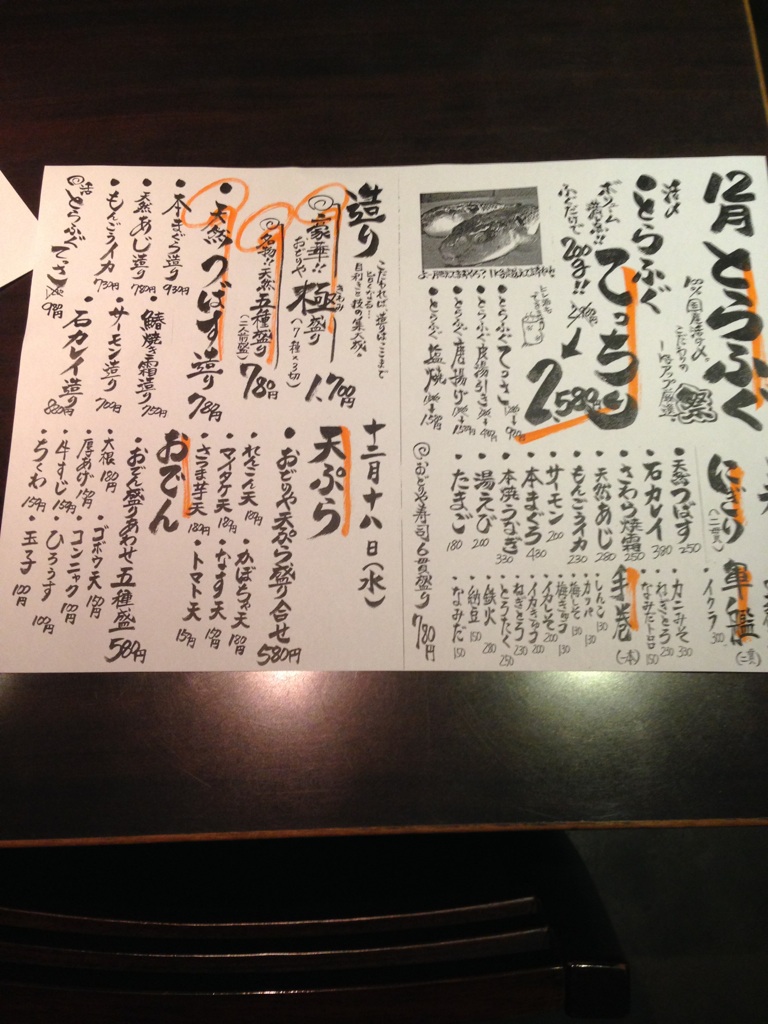 12月とらふぐ祭
100%国産活〆
こだわりの
1kgアップ厳選
活〆
とらふぐ
てっちり
ボリューム満点!!
ふぐだけで200g!!
2,580円
とらふぐてっさ
とらふぐ皮湯引き
とらふぐ唐揚げ
とらふぐ塩焼
にぎり(二貫)
天然つばす 250
石カレイ 380
さわら焼霜 250
天然あじ 280
もんごうイカ 230
サーモン 200
本まぐろ 430
本焼うなぎ 330
湯えび 200
たまご 180
軍艦(二貫)
イクラ 300
カニみそ 330
ねぎとろ 230
なみだトロ 150
手巻(一本)
しんこ 130
カッパ 130
梅しそ 130
梅きゅう 130
イカしそ 200
イカきゅう 200
ねぎとろ 230
とろたく 250
鉄火 280
納豆 150
なみだ 150
おどりや寿司6貫盛り 780円
造り
こだわれば、造りはここまで
旨くなる…
目利きと技の集大成。
豪華!!極み盛り
おどりや(7種×3切) 1,700円
名物!!天然五種盛り(二人前盛) 780円
天然つばす造り 780円
本まぐろ造り 930円
天然あじ造り 780円
鰆焼き霜造り 750円
もんごうイカ 730円
サーモン造り 700円
石カレイ造り 880円
活とらふぐてっさ 980円
十二月十八日(水)
天ぷら
おどりや天ぷら盛り合せ 580円
れんこん天 180円
かぼちゃ天 180円
マイタケ天 180円
なす天 150円
さつま芋天 180円
トマト天 150円
おでん
おでん盛りあわせ五種盛 580円
大根 180円
ゴボウ天 150円
厚あげ 150円
コンニャク 100円
牛すじ 150円
ひろうす 100円
ちくわ 150円
玉子 100円